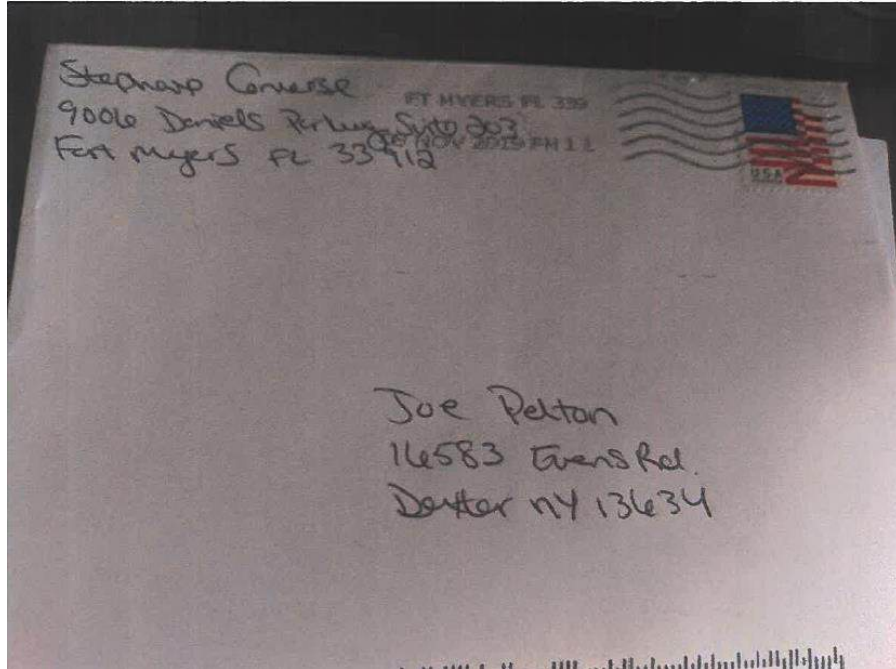 Stephanie Converse
9006 Daniels Parkway Suite 203
Fort Myers FL 33912
FT MYERS FL 339
NOV 2019 PM 1 L
USA
Joe Pelton
16583 Evens Rd.
Dexter NY 13634